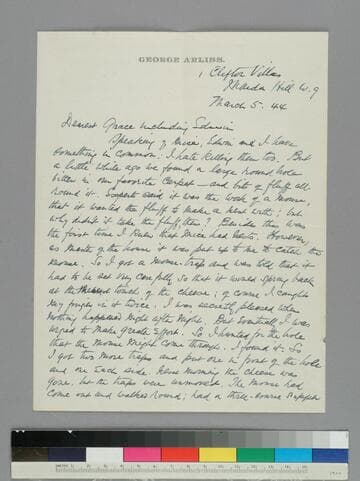 GEORGE ARLISS.
1 Clifton Villas
Maida Hill W.9
March 5. 44
Dearest Grace including Edwin
Speaking of mice, Edwin and I have
something in common; I hate killing them too. But
a little while ago we found a large round hole
bitten in our favorite carpet — and bits of fluff all
round it. Experts said it was the work of a mouse,
that it wanted the fluff to make a nest with; but
why didn't it take the fluff then? Besides this was
the first time I knew that mice had nests. However,
as master of the house it was put up to me to catch the
mouse. So I got a mouse-trap and was told that it
had to be set very carefully so that it would spring back
at the touch of the cheese; of course I caught
my finger in it twice. I was secretly pleased when
nothing happened night after night. But eventually I was
urged to make greater effort. So I hunted for the hole
that the mouse might come through. I found it. So
I got two more traps and put one in front of the hole
and one each side. Next morning the cheese was
gone, but the traps were unmoved. The mouse had
come out and walked round; had a three-course supper